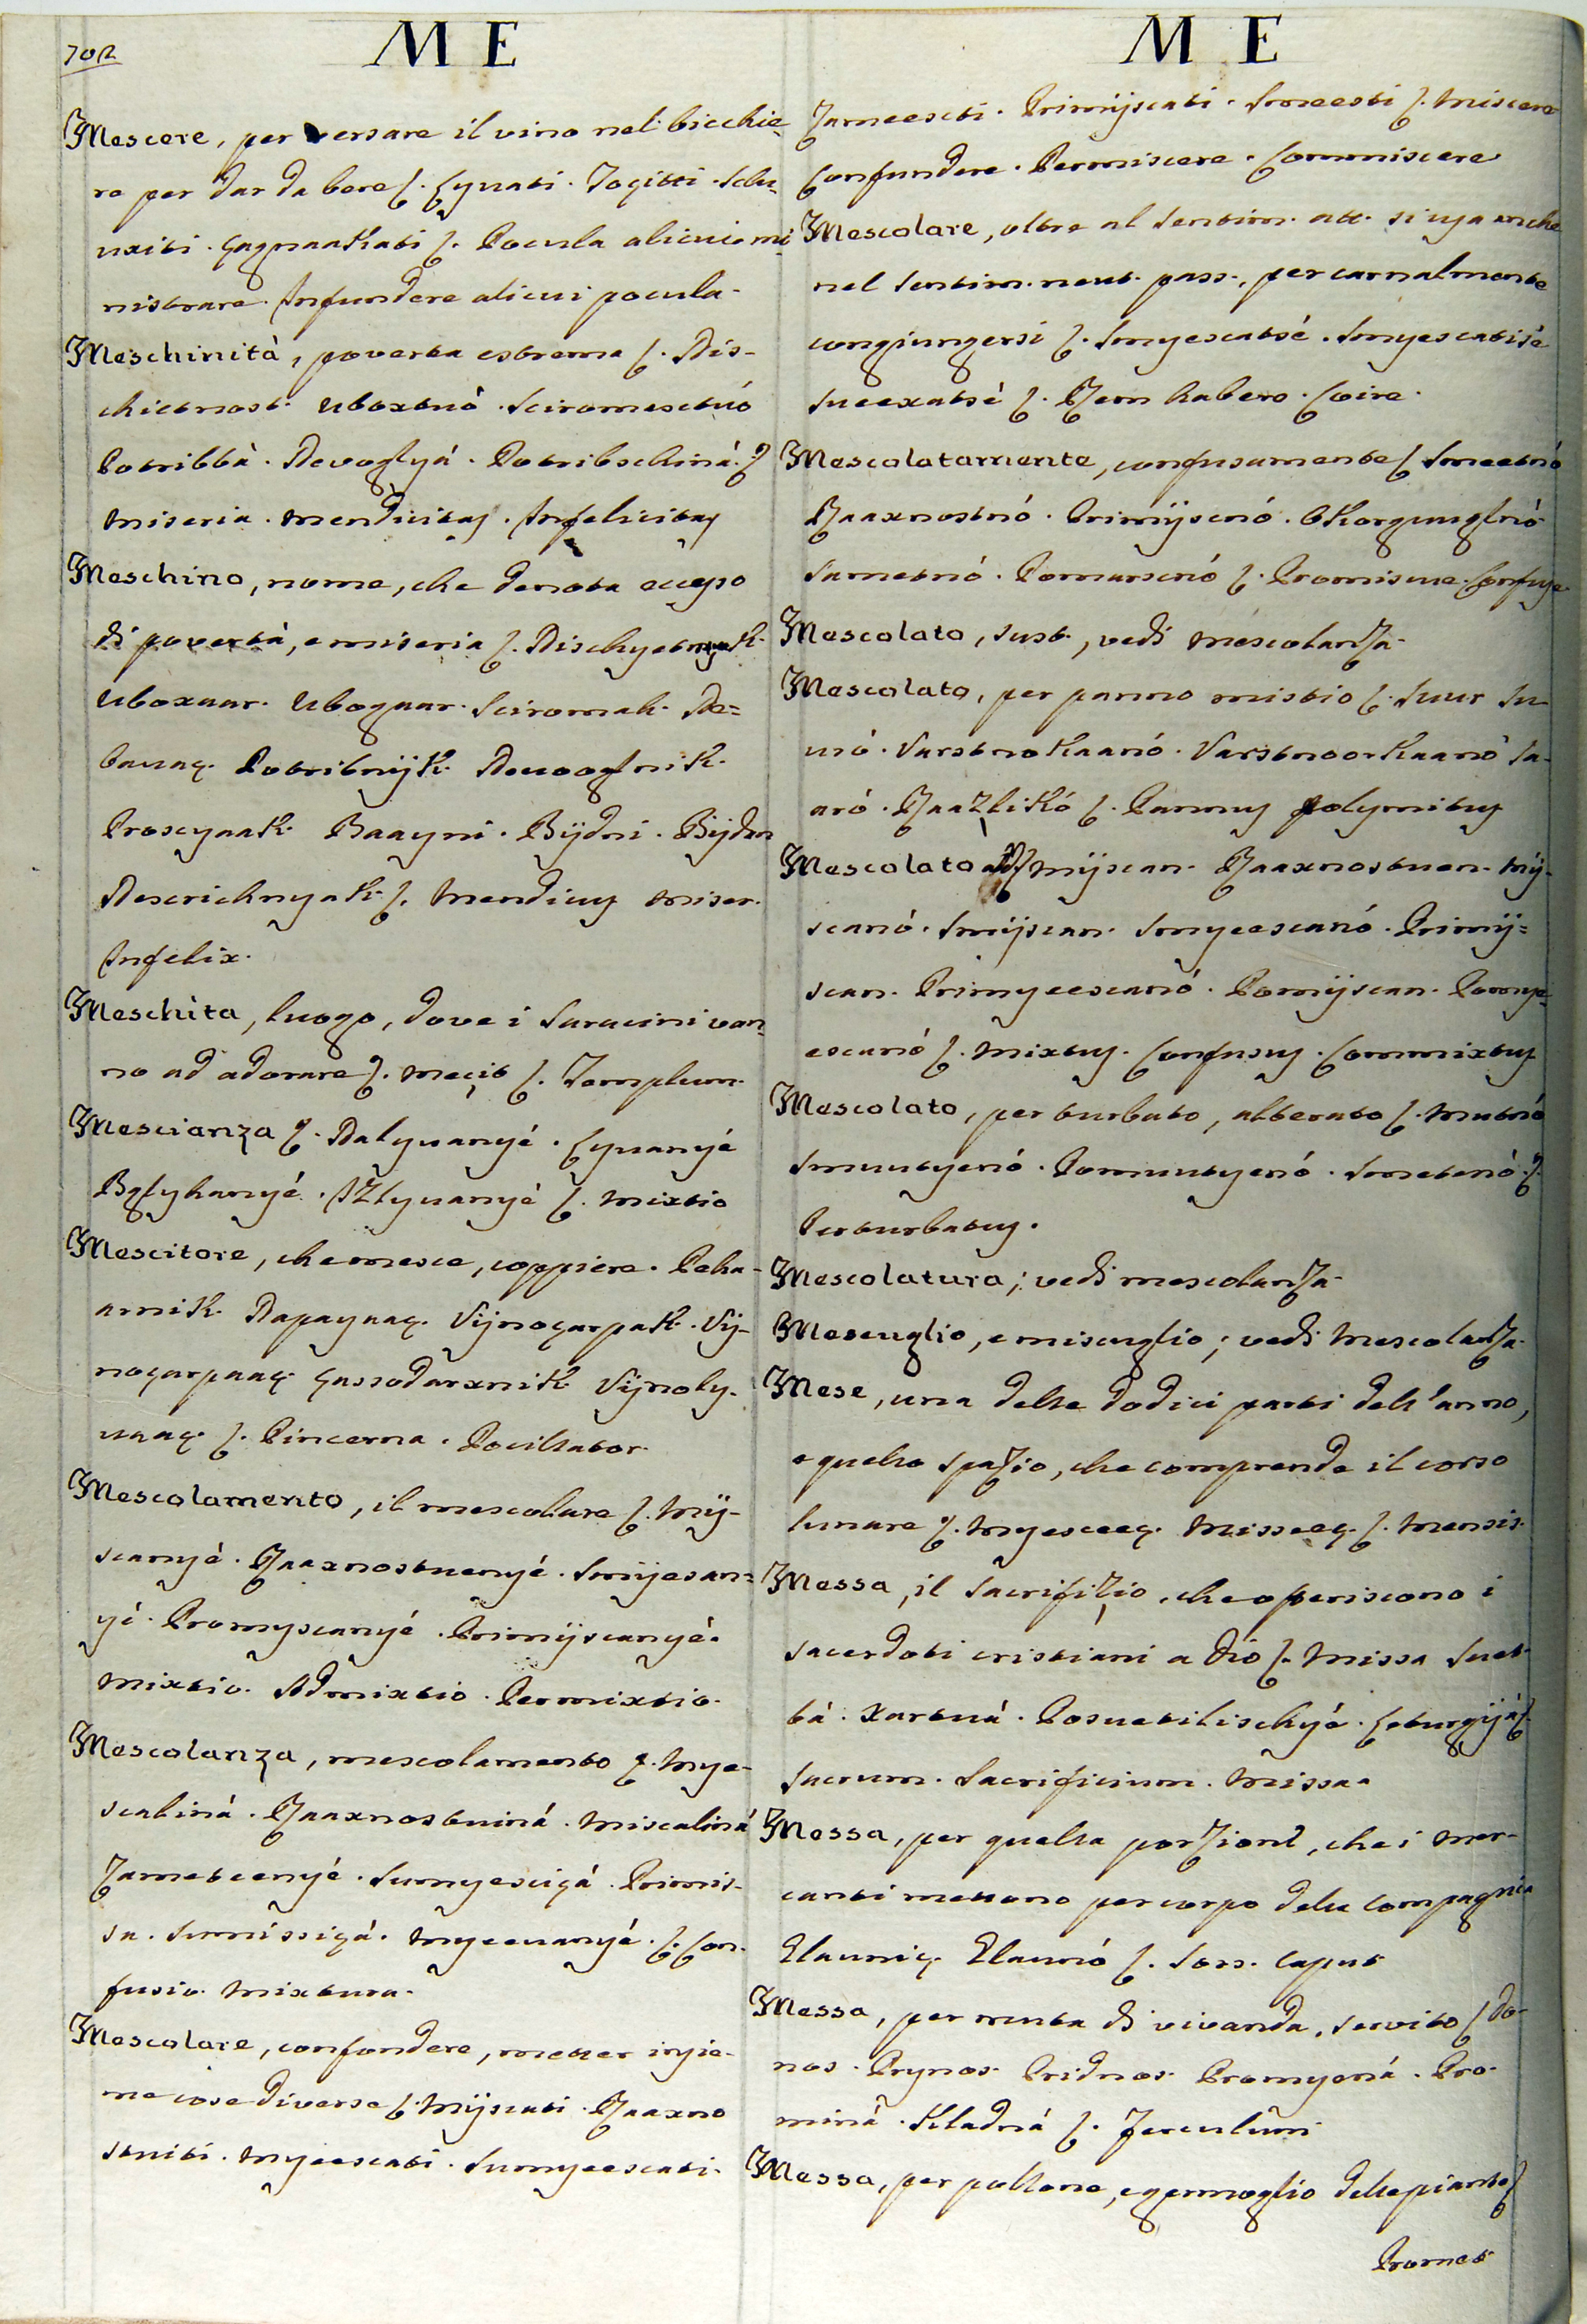 702
M E
Mescere, per versare il vino nel bicchie-
re per dar da bere ʃ. Lyvati. Tocitti. Sclu-
uxiti. çagnaakati ʃ. Pocula alicui mi-
nistrare. Infundere alicui pocula.
Meschinità, poverta estrema ʃ. Dis-
chietnost. Uboxtuó. Sciromesctuó
Potribbà. Nevoglyá. Potribschiná. ʃ
Miseria. Mendicitas. Infelicitas
Meschino, nome, che denota eccesso
di povertà, e miseria ʃ. Dischyetnyak.
Uboxaar. Ubogaar. Sciromah. Ne-
bauaç. Potribnijk. Neuooglnik.
Proscyaak. Baayni. Bijdni. Bijdan
Nescrichnyak. ʃ. Mendicus Miser.
Infelix.
Meschita, luogo, dove i Saracini van-
no ad adorare ʃ. Meçit ʃ. Templum.
Mescianza ʃ. Nalyvanyé. Lyvanyé
Izlyvanyé ʃ. Mixtio
Mescitore, che mesce, coppiere. Peha-
arnik. Napayaaç. Vijnoçarpak. Vij-
noçarpaaç. çassodarxnik. Vijnoly-
uaaç. ʃ. Pincerna. Pocillator.
Mescolamento, il mescolare ʃ. Mij-
scanyé. Raaxnostuenyé. Smijesan-
yé. Promyscanyé. Primijscanyé.
Mixtio. Admixtio. Permixtio.
Mescolanza, mescolamento ʃ. Mye-
scaliná. Raaxnostuiná. Miscaliná
Zametcenyé. Sumyesciçá. Primis-
sa. Sumissiçá. Myeeuanyé. ʃ. Con-
fusio. Mixtura.
Mescolare, confondere, metter insie-
me cose diverse ʃ. Mijscati. Raaxno
stuiti. Myeescati. Sumyeescati.
M E
Zameescti. Primijscati. Smeesti ʃ. Miscere
Confundere. Permiscere. Commiscere
Mescolare, oltre al sentim. att. si usa anche
nel sentim. neut. pass., per carnalmente
congiungersi ʃ. Smyescatsé. Smyescatisé
Sueexatsé ʃ. Rem habere. Coire.
Mescolatamente, confusamente ʃ. Smeetnó
Raaxnostnó. Primijscnó.
Sametnó. Pomarscnó ʃ. Promiscue. Confuse
Mescolato, sust., vedi Mescolanza.
Mescolato, per panno mistio ʃ. Suur Su-
unó. Varstnokaanó. Varstnoorkaanó Sa-
aró. Raazlikó ʃ. Pannus polymitus
Mescolato add Mijscan. Raaxnostuen. Mij-
scanó. Smijscan. Smyeescanó. Primij-
scan. Primyeescanó. Pomijscan. Pomye-
escanó ʃ. Mixtus. Confusus. Commixtus
Mescolato, per turbato, alterato ʃ. Mutnó
Smuutyenó. Pomuutyenó. Smetenó. ʃ.
Perturbatus.
Mescolatura; vedi mescolanza.
Mescuglio, e miscuglio; vedi Mescolanza.
Mese, una delle dodici parti dell'anno,
e quello spazio, che comprende il corso
lunare ʃ. Myesceeç. Misseeç. ʃ. Mensis.
Messa, il Sacrifizio, che operiscono i
sacerdoti cristiani a Dio ʃ. Missa Suet-
bá. Xartuá. Posuetilischyé. Leturgijá ʃ.
Sacrum. Sacrificium. Missa.
Messa, per quella porzione, che i mer-
canti mettono per corpo delle compagnia
Glauniç. Glaunó ʃ. Sors. Caput
Messa, per muta di vivanda, servito ʃ. Do-
nos. Prynos. Pridnos. Promyená. Pro-
miná. Kladná ʃ. Ferculum
Messa, per pollone, e germoglio delle piante ʃ
Promet